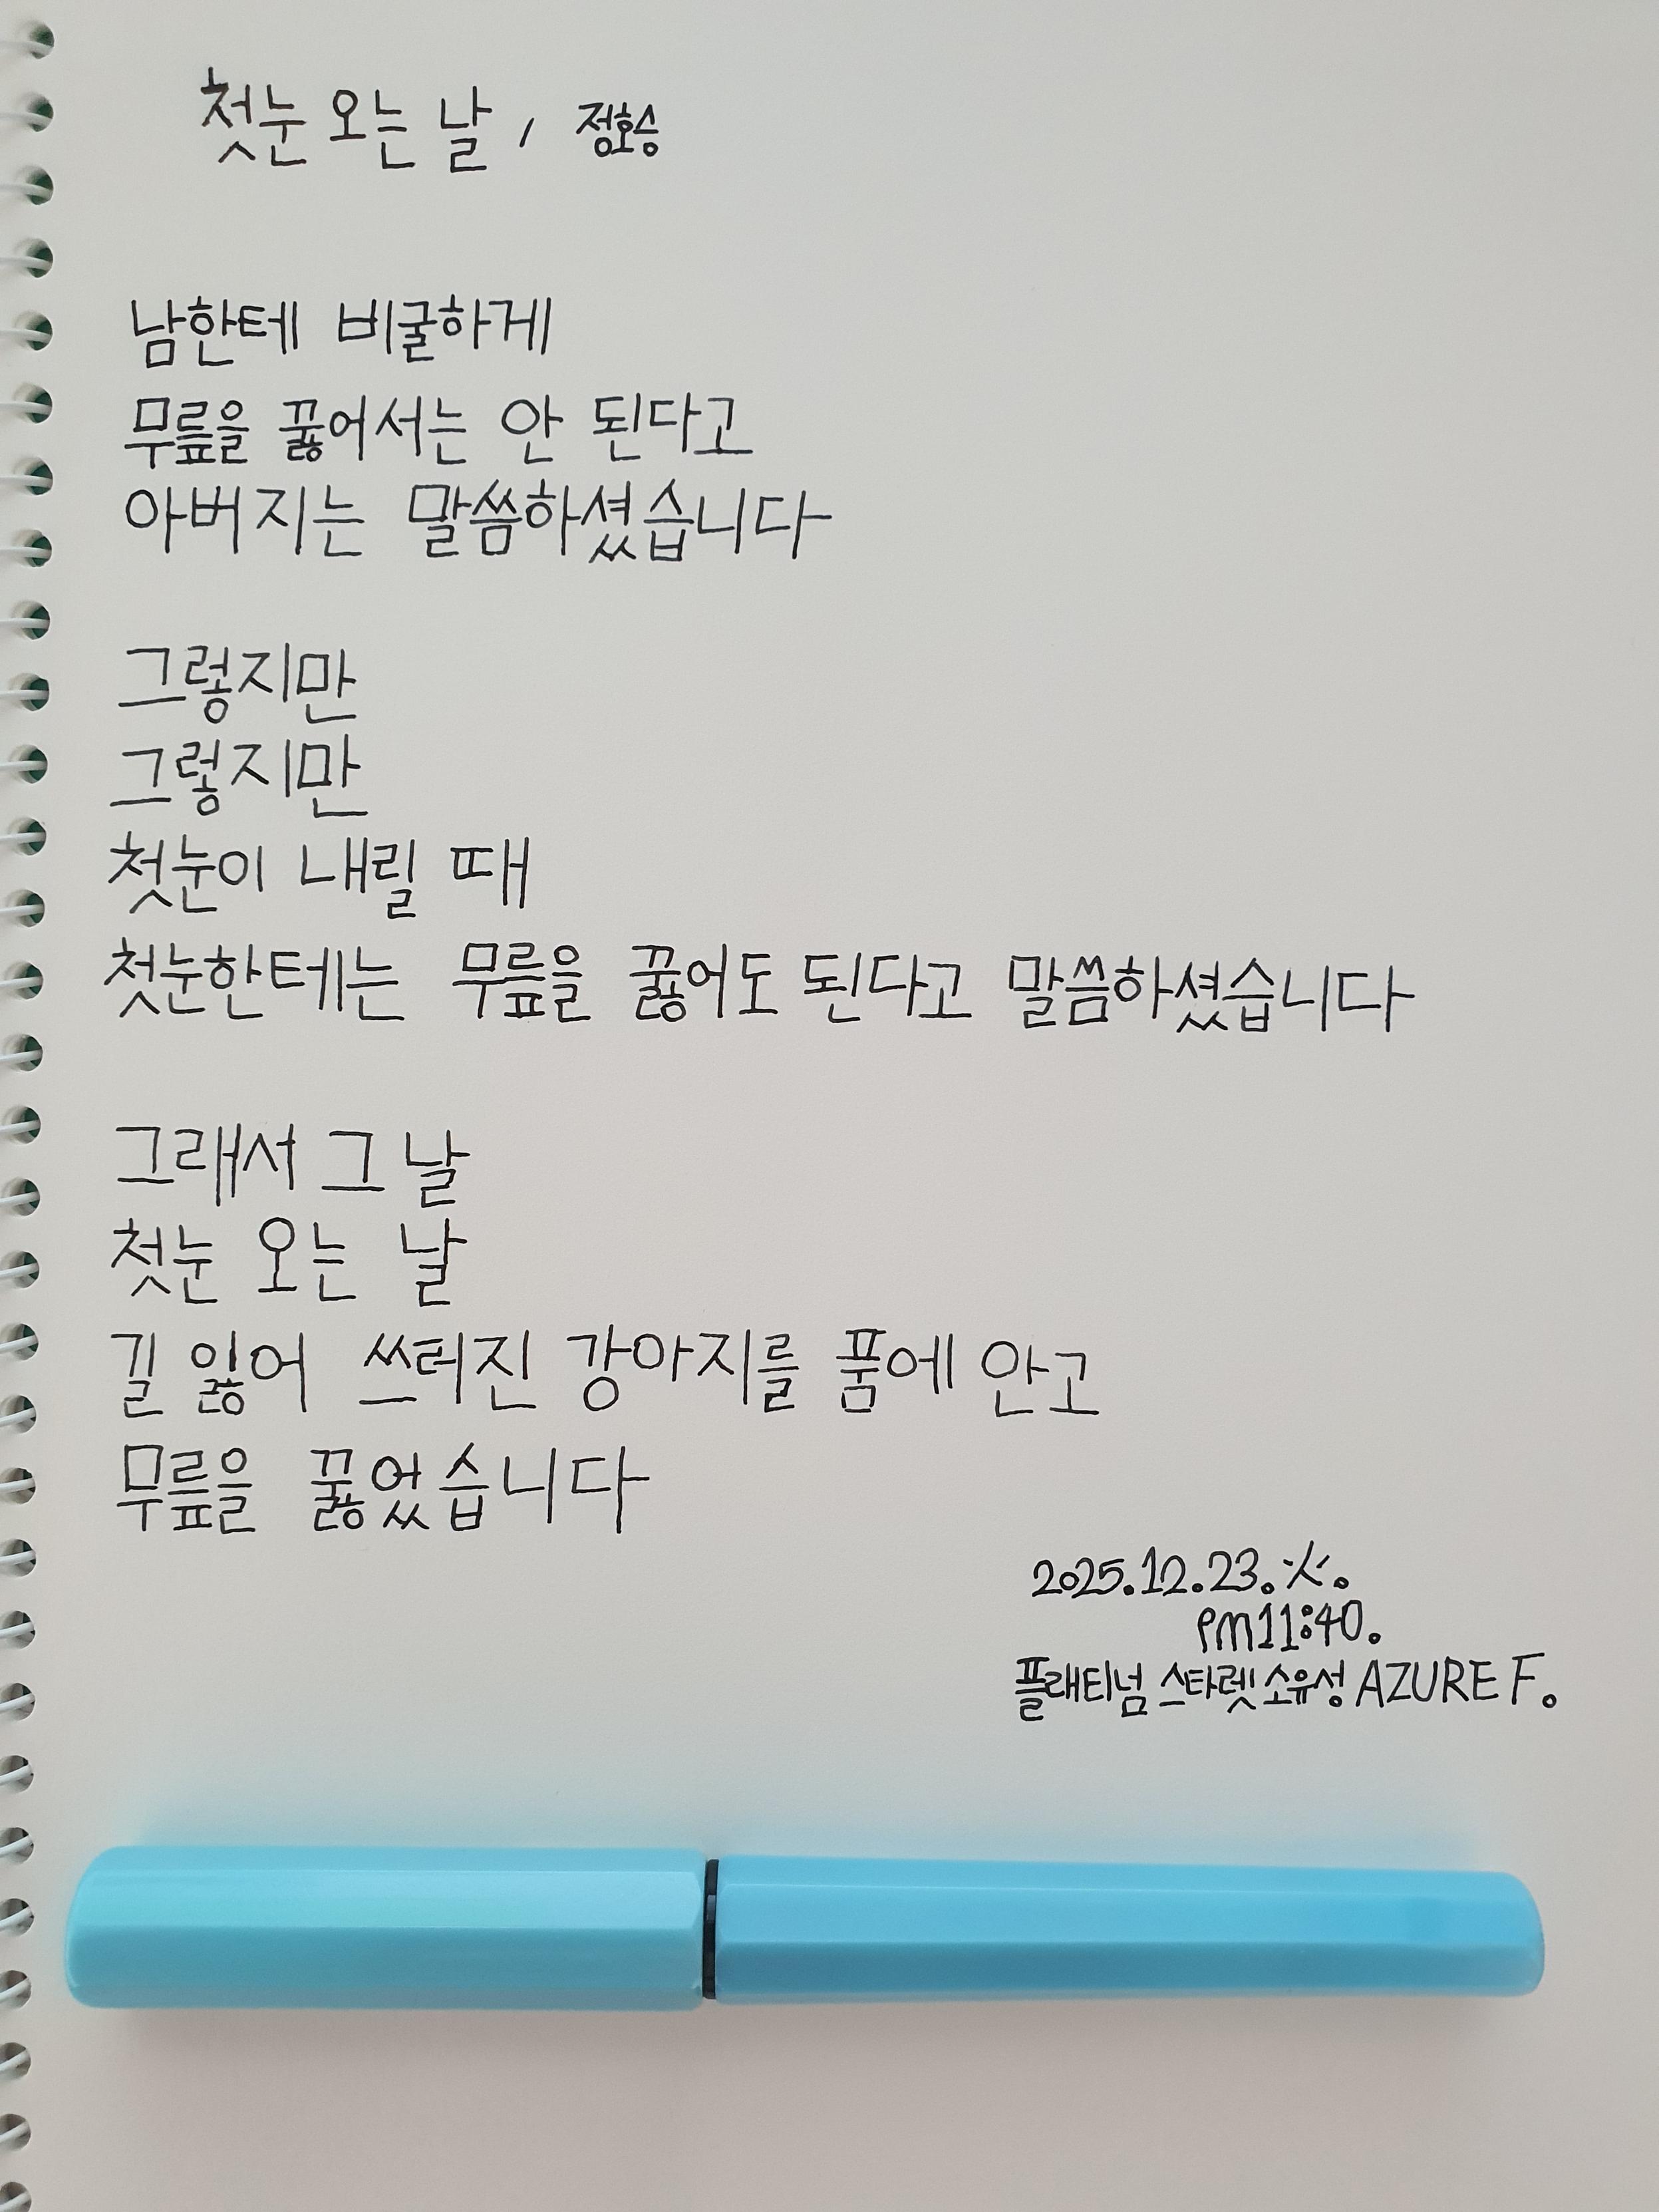 첫눈 오는 날, 정호승
남한테 비굴하게
무릎을 꿇어서는 안 된다고
아버지는 말씀하셨습니다
그렇지만
그렇지만
첫눈이 내릴 때
첫눈한테는 무릎을 꿇어도 된다고 말씀하셨습니다
그래서 그 날
첫눈 오는 날
길 잃어 쓰러진 강아지를 품에 안고
무릎을 꿇었습니다
2025.12.23.火.
PM11:40.
플래티넘 스타렛 소유성 AZURE F.